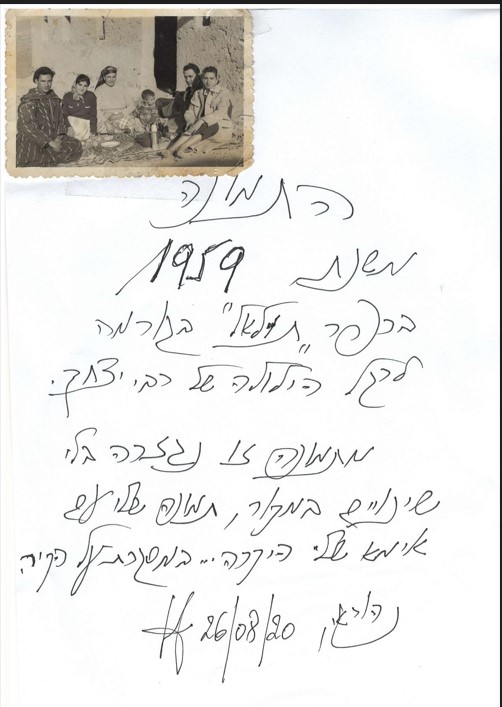 התמונה
משנת 1959
בכפר "תילאל" בגורמה
לרגל הילולה של רבי יצחק.
מתמונה זו נגזרה בלי
שינויים במקור, תמונה שלי עם
אימא שלי היקרה... במסגרת על הקיר
26/08/20